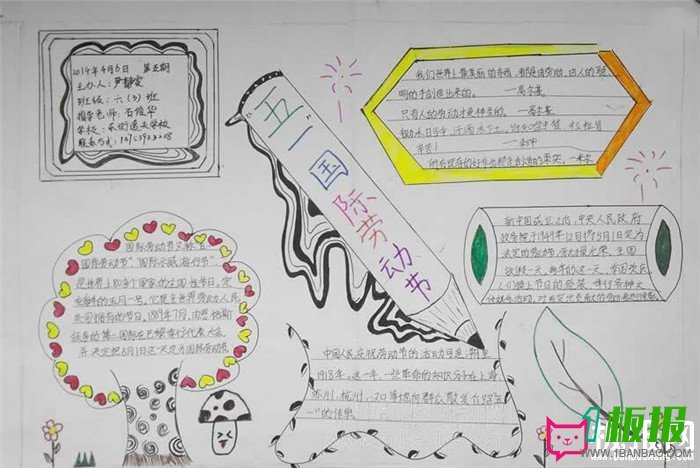 2014年4月6日 第五期
主办人:尹静雯
班级:六(3)班
指导老师:石俊华
学校:东街逸夫学校
联系方式:
五一国际劳动节
我们世界上最美丽的东西,都是由劳动、由人的聪
明的手创造出来的。——高尔基
只有人的劳动才是神圣的。——高尔基
锄禾日当午,汗滴禾下土,谁知盘中餐,粒粒皆
辛苦!
国际劳动节又称"五一
国际劳动节""国际示威游行节",
是世界上80多个国家的全国性节日。定
在每年的五月一号。它是全世界劳动人民
共同拥有的节日。1889年7月,由恩格斯
领导的第二国际在巴黎举行代表大会。
并决定把5月1日这一天定为国际劳动节。
新中国成立之后,中央人民政府
政务院于1949年12月将5月1日定为
法定的劳动节,
放假一天。每年的这一天,举国欢庆
人们换上节日的盛装,
中国人民庆祝劳动节的活动可追溯至
1918年。这一年,一些革命的知识分子在上海、
苏州、杭州、汉口等地向群众散发介绍"五
一"的传单。
1板报
WWW.1BANBAO.COM